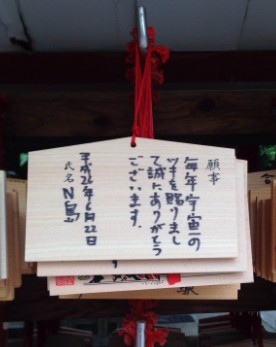 願事
毎年宇宙一の
ツキを賜りまし
て誠にありがとう
ございます。
平成26年6月22日
氏名 N島